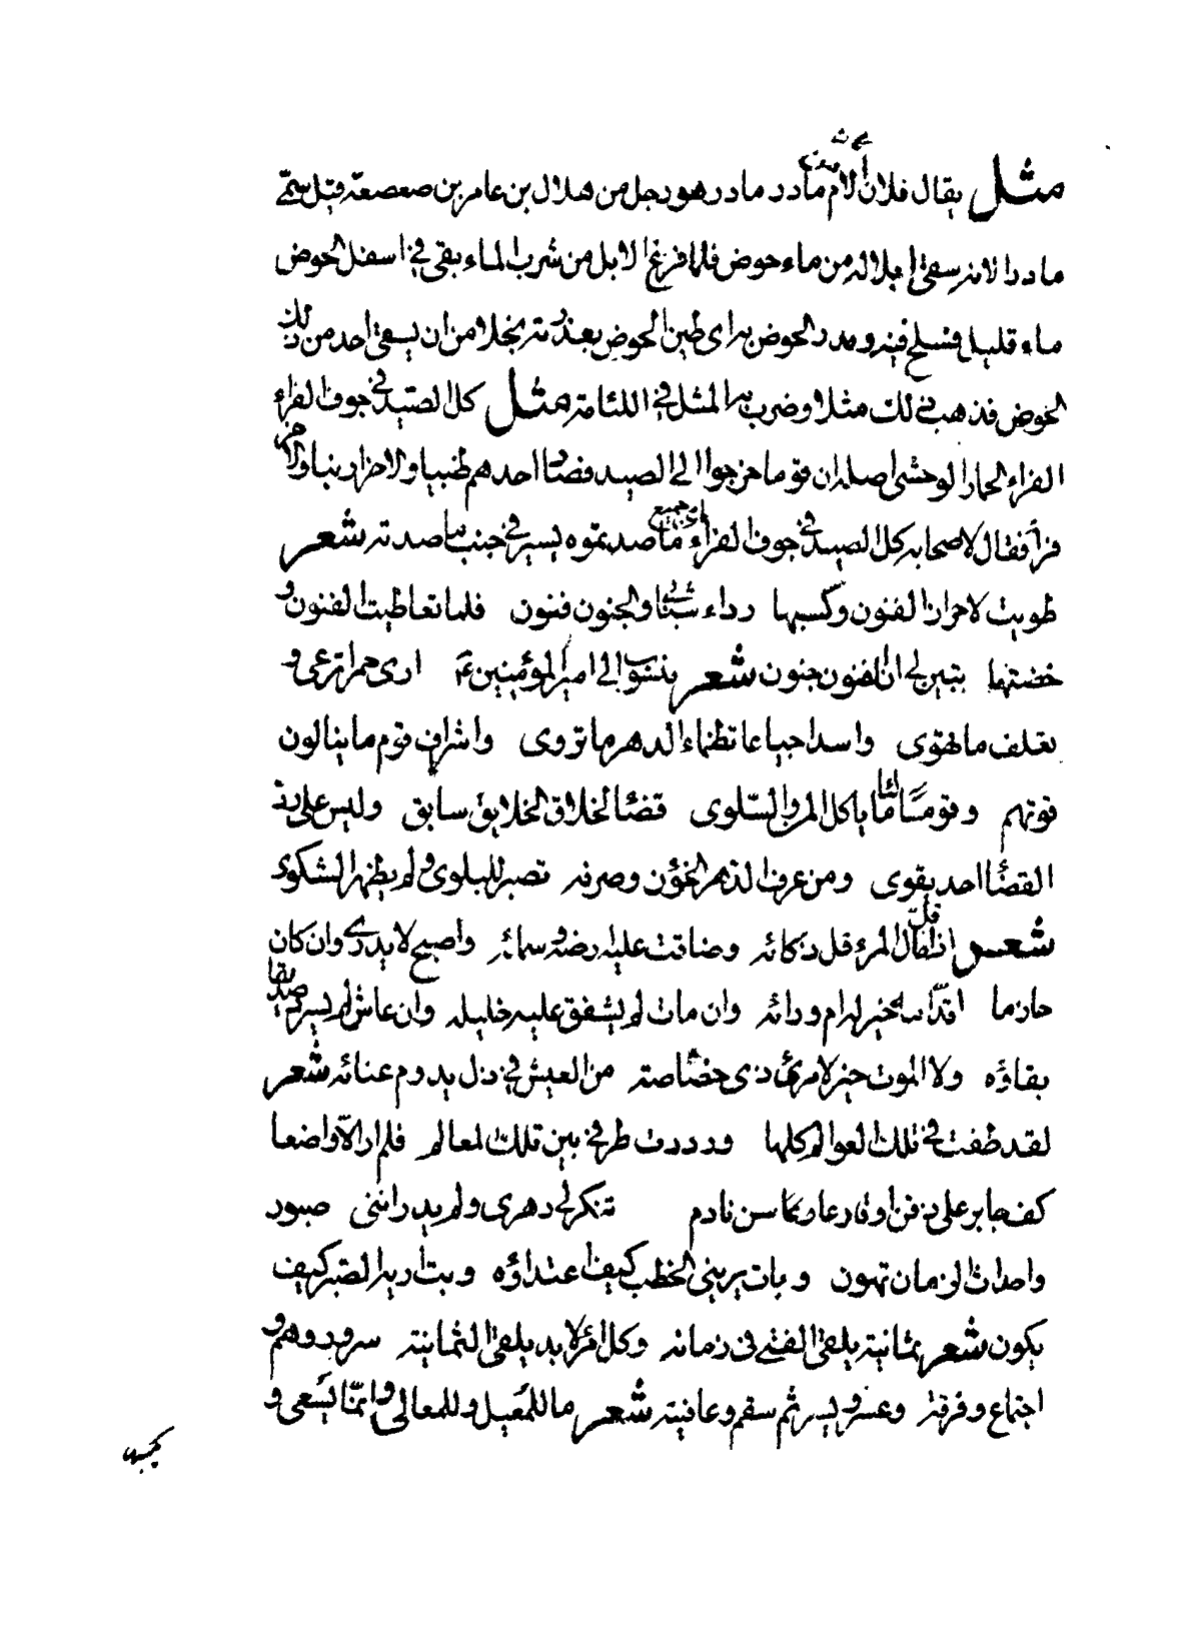 مثل يقال فلان ألأم من مادر مادر هو رجل من هلال بن عامر بن صعصعة قيل سمّي
مادرا لانه سقى ابلا له من ماء حوض فلما فرغ الابل من شرب الماء بقى في اسفل الحوض
ماء قليل فسلح فيه ومدر الحوض به اى طين الحوض بعذرته بخلا من ان يسقى احد من ذلك
الحوض فذهب ذلك مثلا وضرب به المثل في اللئامة مثل كل الصيد في جوف الفراء
الفراء الحمار الوحشى اصله ان قوما خرجوا الى الصيد فصاد احدهم ظبيا والاخر ارنبا والاخر
فرأ فقال لاصحابه كل الصيد في جوف الفراء اى جميع ما صدتموه يسير في جنب ما صدته شعر
طويت لاحراز الفنون وكسبها رداء شبابى والجنون فنون فلما تعاطيت الفنون و
خضتها تبين لى ان الفنون جنون شعر ينسب الى امير المؤمنين ارى حمرا ترعى و
تعلف ما تهوى واسدا جياعا تظماء الدهر ما تروى واشراف قوم ما ينالون
قوتهم وقوما لئاما يأكل المن والسلوى قضاء لخلاق الخلايق سابق وليس على رد
القضا احد يقوى ومن عرف الدهر الخؤن وصرفه تصبر للبلوى ولم يظهر الشكوى
شعر اذا قل مال المرء قل ذكائه وضاقت عليه ارضه وسمائه واصبح لا يدرى وان كان
حازما اقدامه خير له ام ورائه وان مات لم يشفق عليه خليله وان عاش لم يسرر صديقا
بقاؤه وللموت خير لامرئ ذى خصاصة من العيش في ذل يدوم عنائه شعر
لقد طفت في تلك العوالم كلها ورددت طرفى بين تلك المعالم فلم ار الا واضعا
كف حاير على ذقن او قارعا سن نادم تنكر لى دهرى ولم يدر اننى صبور
واحداث الزمان تهون وبات يرينى الخطب كيف اعتداؤه وبت اريه الصبر كيف
يكون شعر ثمانية يلقى الفتى فى زمانه وكل امرء لا بد يلقى الثمانية سرور وهم و
اجتماع وفرقة وعسر ويسر ثم سقم وعافية شعر ما للمعيل وللمعالى وانما يسعى و